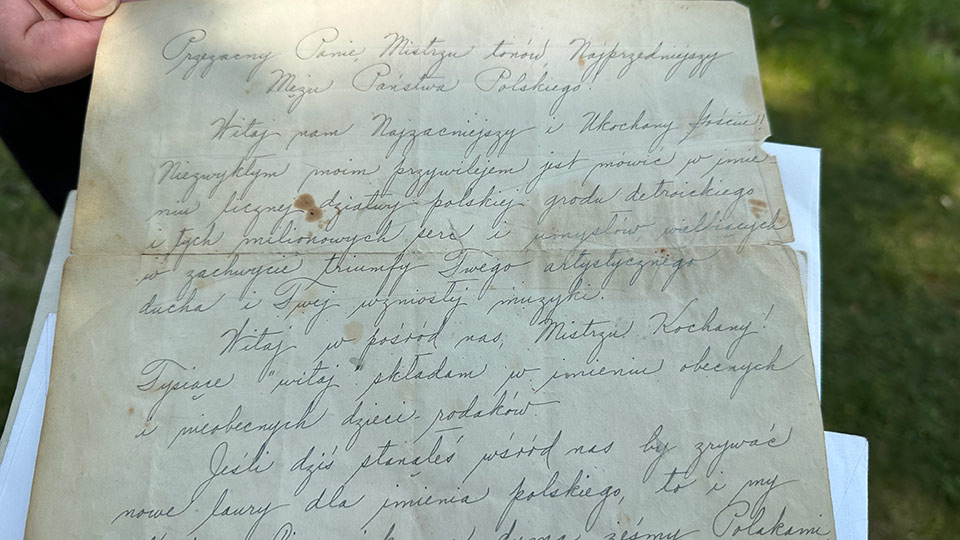 Przezacny Panie, Mistrzu tonów, Najprzedniejszy
Mężu Państwa Polskiego!
Witaj nam Najzacniejszy i Ukochany Gościu!!
Niezwykłym moim przywilejem jest mówić w imie
niu licznej dziatwy polskiej grodu detroickiego
i tych milionowych serc i umysłów wielbiących
w zachwycie triumfy Twego artystycznego
ducha i Twej wzniosłej muzyki.
Witaj w pośród nas, Mistrzu Kochany!
Tysiące "witaj" składam w imieniu obecnych
i nieobecnych dzieci-rodaków.
Jeśli dziś stanąłeś wśród nas by zrywać
nowe laury dla imienia polskiego, to i my
dumą żeśmy Polakami,